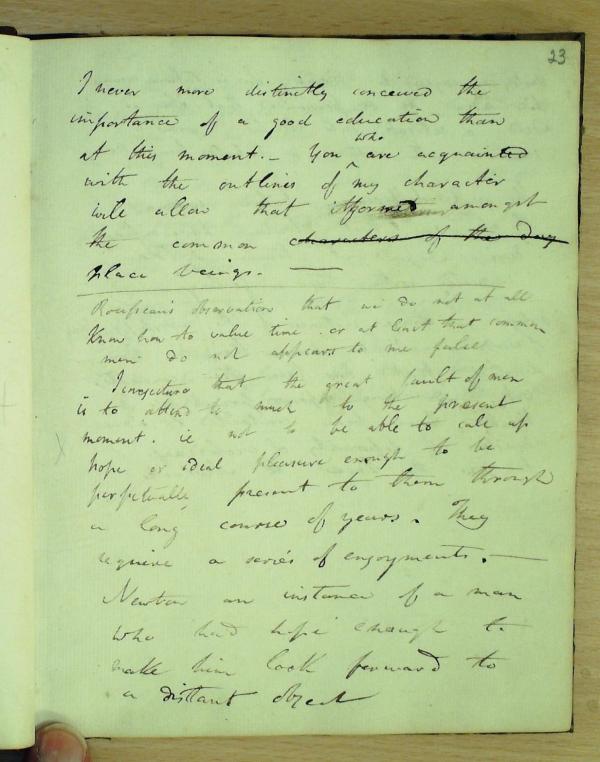 23
I never more distinctly conceived the
importance of a good education than
at this moment. – You who are acquainted
with the outlines of my character
will allow that it formed amongst
the common characters of the day
place beings. —
Rousseau's observation that we do not at all
know how to value time or at least that common
men do not appears to me false
I conjecture that the great fault of men
is to attend to much to the present
moment. ie not to be able to call up
hope or ideal pleasure enough to be
perpetually present to them through
a long course of years. They
require a series of enjoyments. —
Newton an instance of a man
who had hope enough to
make him look forward to
a distant object